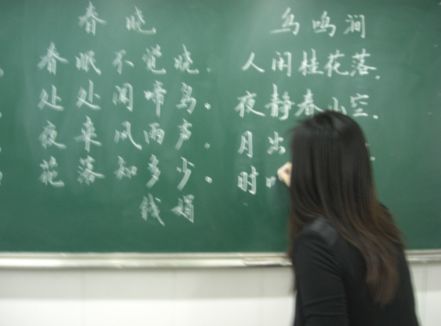 春晓
春眠不觉晓。
处处闻啼鸟。
夜来风雨声。
花落知多少。
钱娟
鸟鸣涧
人闲桂花落。
夜静春山空。
月出
时